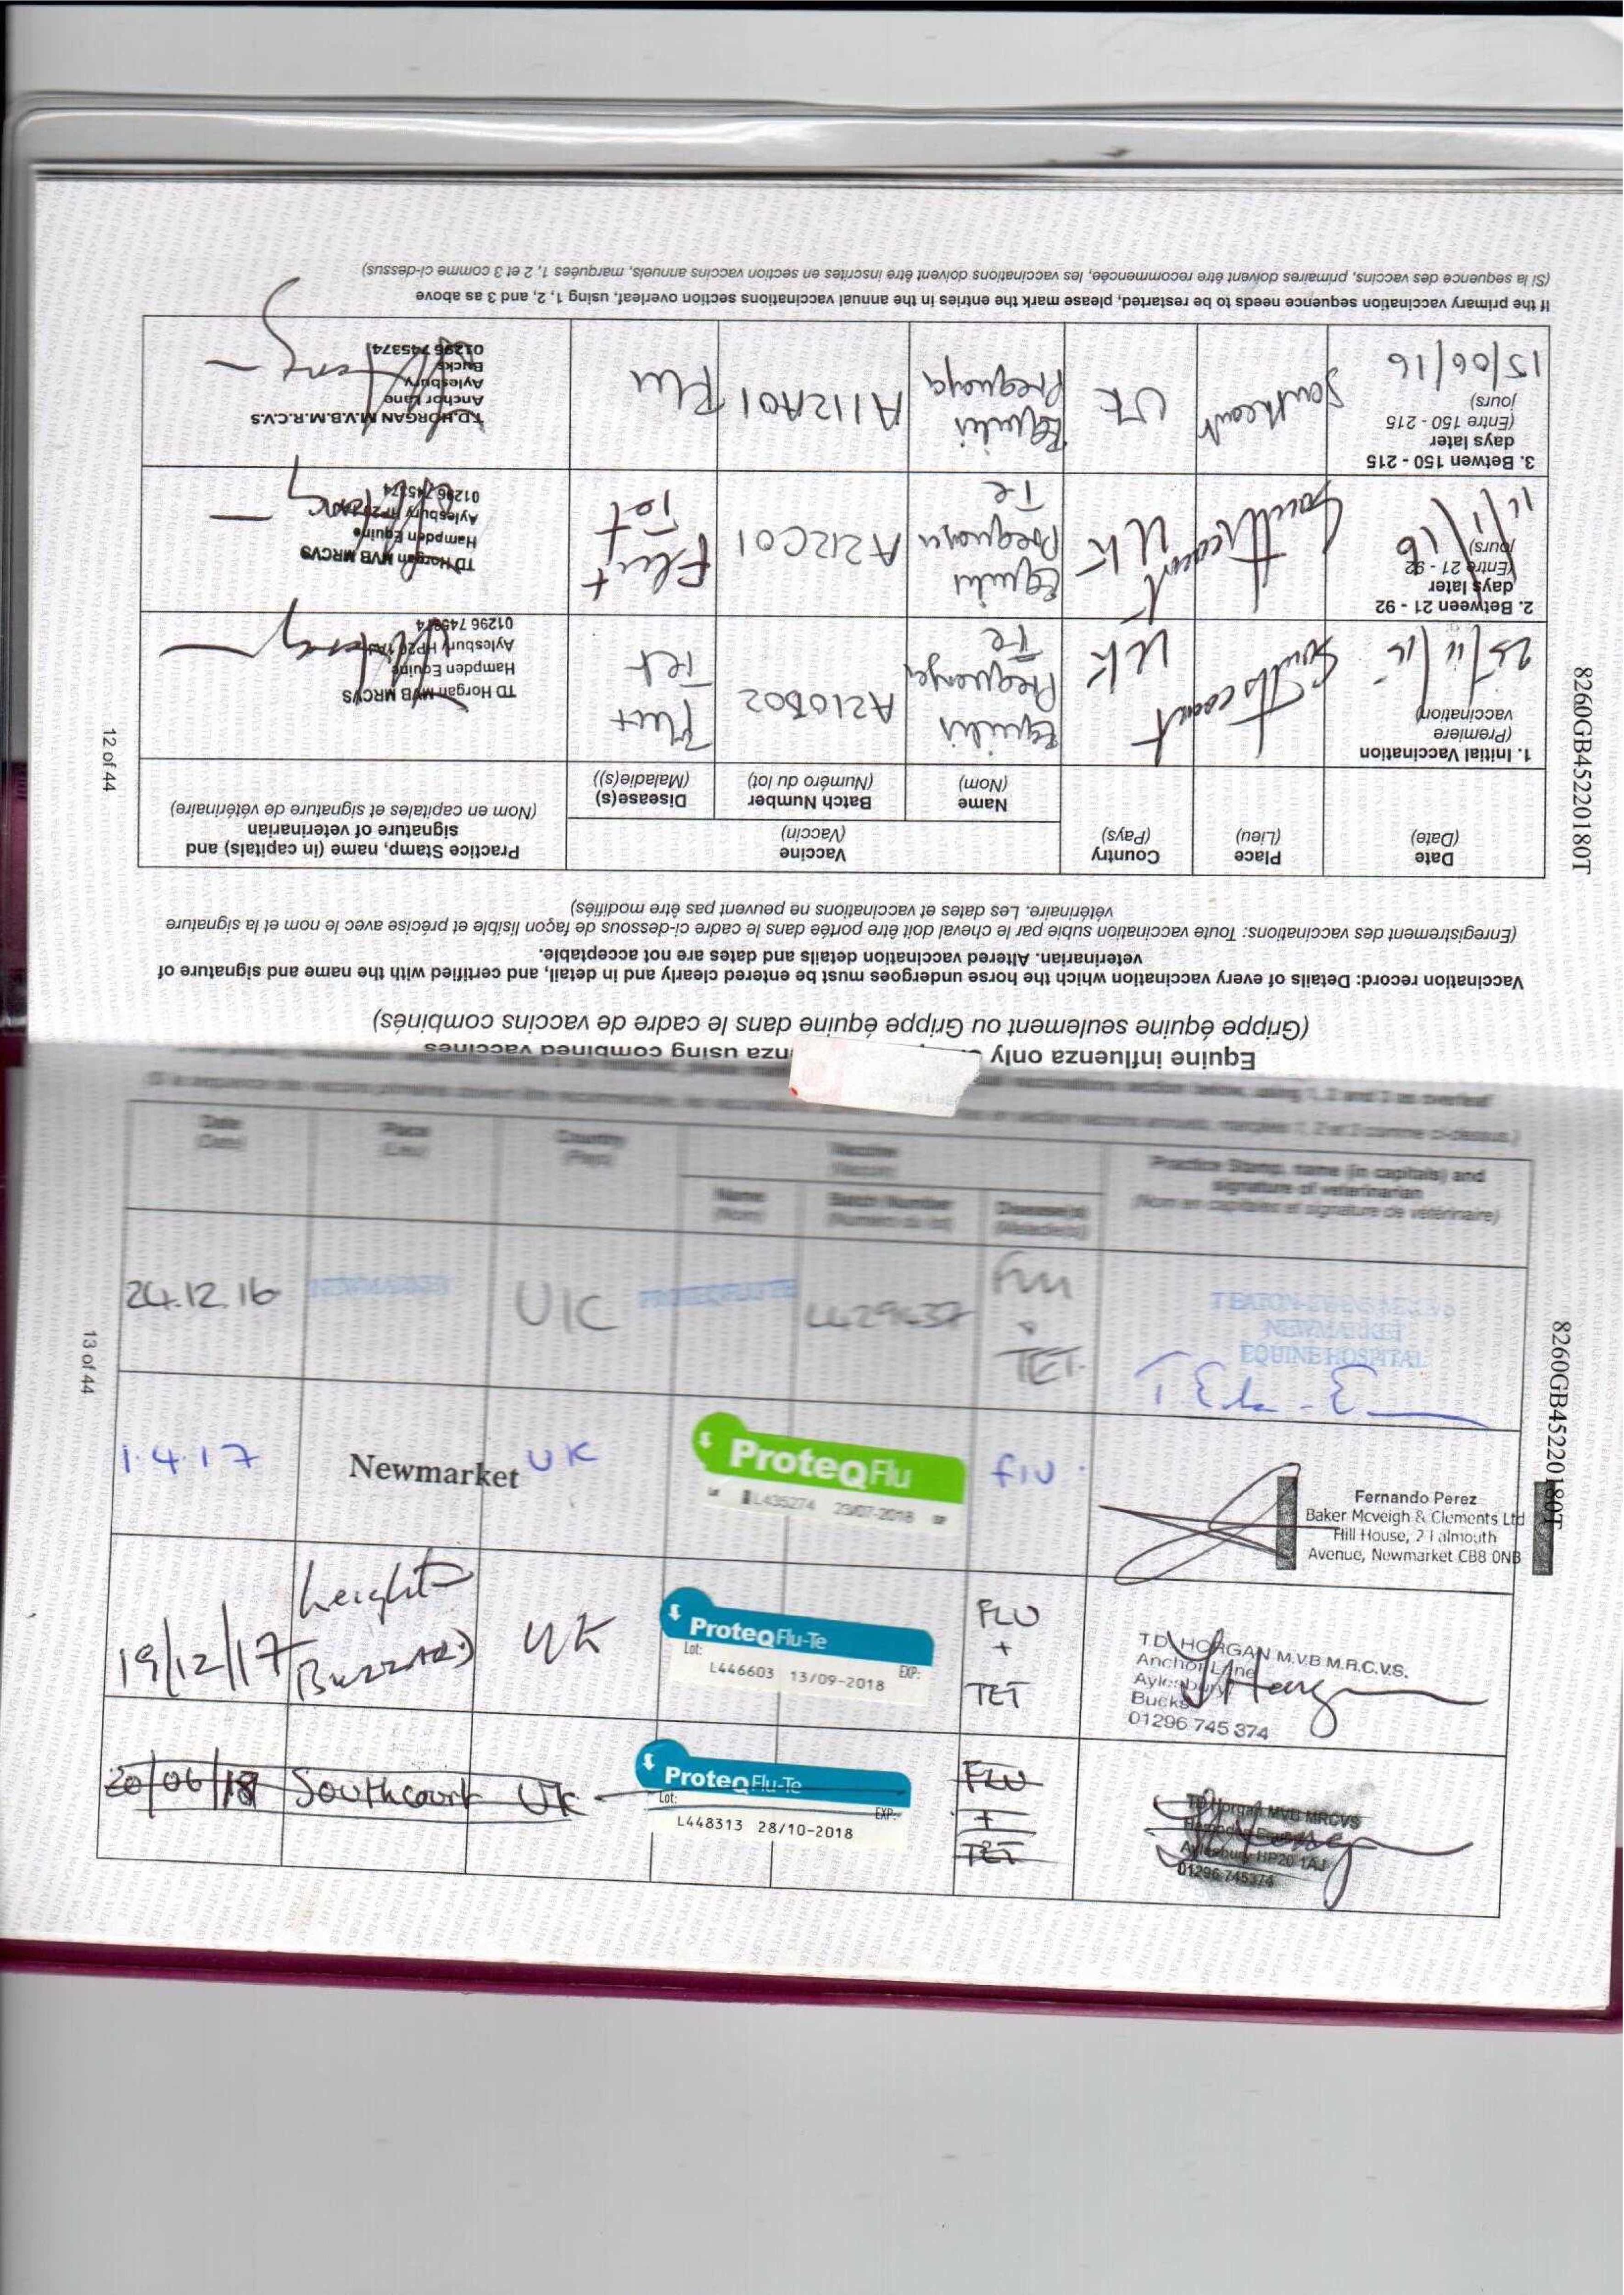 Equine influenza only
nza using combined vaccines
(Grippe équine seulement ou Grippe équine dans le cadre de vaccins combinés)
Vaccination record: Details of every vaccination which the horse undergoes must be entered clearly and in detail, and certified with the name and signature of
veterinarian. Altered vaccination details and dates are not acceptable.
(Enregistrement des vaccinations: Toute vaccination subie par le cheval doit être portée dans le cadre ci-dessous de façon lisible et précise avec le nom et la signature
vétérinaire. Les dates et vaccinations ne peuvent pas être modifiés)
Date
(Date)
Place
(Lieu)
Country
(Pays)
Vaccine
(Vaccin)
Name
(Nom)
Batch Number
(Numéro du lot)
Disease(s)
(Maladie(s))
Practice Stamp, name (in capitals) and
signature of veterinarian
(Nom en capitales et signature de vétérinaire)
1. Initial Vaccination
(Premiere
vaccination)
25/11/15
Southcourt
UK
Equilis
Prequenza
Te
A210B02
Flu+
Tet
TD Horgan MVB MRCVS
Hampden Equine
Aylesbury HP20 1AJ
01296 745374
2. Between 21 - 92
days later
(Entre 21 - 92
jours)
11/1/16
Southcourt
UK
Equilis
Prequenza
Te
A212C01
Flu +
Tet
TD Horgan MVB MRCVS
Hampden Equine
Aylesbury HP20 1AJ
01296 745374
3. Betwen 150 - 215
days later
(Entre 150 - 215
jours)
15/06/16
Southcourt
UK
Equilis
Prequenza
A112A01
Flu
T.D. HORGAN M.V.B.M.R.C.V.S
Anchor Lane
Aylesbury
Bucks
01296 745374
If the primary vaccination sequence needs to be restarted, please mark the entries in the annual vaccinations section overleaf, using 1, 2, and 3 as above
(Si la sequence des vaccins, primaires doivent être recommencée, les vaccinations doivent être inscrites en section vaccins annuels, marquées 1, 2 et 3 comme ci-dessus)
12 of 44
8260GB45220180T
Date
(Date)
Place
(Lieu)
Country
(Pays)
Vaccine
(Vaccin)
Name
(Nom)
Batch Number
(Numéro du lot)
Disease(s)
(Maladie(s))
Practice Stamp, name (in capitals) and
signature of veterinarian
(Nom en capitales et signature de vétérinaire)
24.12.16
NEWMARKET
UK
PROTEQFLU TE
FLU
+
TET.
NEWMARKET
EQUINE HOSPITAL
1.4.17
Newmarket
UK
ProteqFlu
L435274 23/07-2018
flu.
Fernando Perez
Baker Mcveigh & Clements Ltd
Hill House, 2 Falmouth
Avenue, Newmarket CB8 0NB
19/12/17
Leighton
Buzzard
UK
ProteqFlu-Te
Lot: EXP:
L446603 13/09-2018
FLU
+
TET
T.D. HORGAN M.V.B M.R.C.V.S.
Anchor Lane
Aylesbury
Bucks
01296 745 374
20/06/18
Southcourt
UK
ProteqFlu-Te
Lot: EXP:
L448313 28/10-2018
FLU
+
TET
TD Horgan MVB MRCVS
Hampden Equine
Aylesbury HP20 1AJ
01296 745374
13 of 44
8260GB45220180T